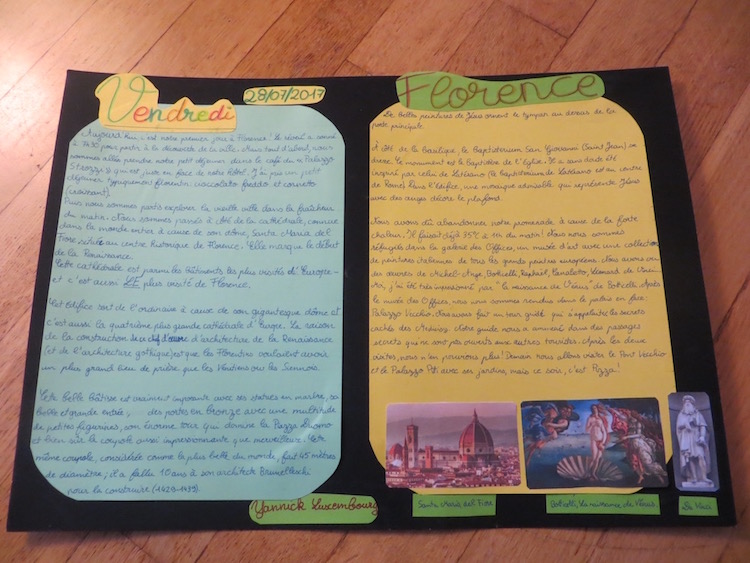 Vendredi
28/07/2017
Aujourd'hui c'est notre premier jour à Florence! Le réveil a sonné
à 7h30 pour partir à la découverte de la ville. Mais tout d'abord, nous
sommes allés prendre notre petit déjeuner dans le café du « Palazzo
Strozzi » qui est juste en face de notre hôtel. J'ai pris un petit
déjeuner typiquement florentin: cioccolato freddo et cornetto
(croissant).
Puis nous sommes partis explorer la vieille ville dans la fraîcheur
du matin. Nous sommes passés à côté de la cathédrale, connue
dans le monde entier à cause de son dôme, Santa Maria del
Fiore située au centre historique de Florence. Elle marque le début
de la Renaissance.
Cette cathédrale est parmi les bâtiments les plus visités d'Europe
et c'est aussi LE plus visité de Florence.
Cet édifice sort de l'ordinaire à cause de son gigantesque dôme et
c'est aussi la quatrième plus grande cathédrale d'Europe. La raison
de la construction de ce chef d'œuvre d'architecture de la Renaissance
(et de l'architecture gothique) est que les Florentins voulaient avoir
un plus grand lieu de prière que les Vénitiens ou les Siennois.
Cette belle bâtisse est vraiment imposante avec ses statues en marbre, sa
belle et grande entrée, des portes en bronze avec une multitude
de petites figurines, son énorme tour qui domine la Piazza Duomo
et bien sûr la coupole aussi impressionnante que merveilleuse! Cette
même coupole, considérée comme la plus belle du monde, fait 45 mètres
de diamètre; il a fallu 16 ans à son architecte Brunelleschi
pour la construire (1420-1436).
Yannick Luxembourg
Florence
De belles peintures de Jésus ornent le tympan au dessus de la
porte principale.
A côté de la Basilique, le Baptisterium San Giovanni (Saint Jean) se
dresse. Le monument est la Baptistère de l'Eglise. Il a sans doute été
inspiré par celui de Latran (le baptisterium de Latran est au centre
de Rome). Dans l'édifice, une mosaïque admirable qui représente Jésus
avec des anges décore le plafond.
Nous avons dû abandonner notre promenade à cause de la forte
chaleur. Il faisait déjà 35°C à 11h du matin! Nous nous sommes
réfugiés dans la galerie des Offices, un musée d'art avec une collection
de peintures italiennes de tous les grands peintres européens. Nous avons vu
des œuvres de Michel-Ange, Botticelli, Raphaël, Canaletto, Léonard de Vinci...
Moi, j'ai été très impressionné par "la naissance de Vénus" de Botticelli. Après
le musée des Offices nous nous sommes rendus dans le palais en face:
Palazzo Vecchio. Nous avons fait un tour guidé qui s'appelait les secrets
cachés des Médicis. Notre guide nous a emmené dans des passages
secrets qui ne sont pas ouverts aux autres touristes. Après les deux
visites, nous n'en pouvions plus! Demain nous allons visiter le Pont Vecchio
et le Palazzo Piti avec ses jardins, mais ce soir, c'est Pizza!
Santa Maria del Fiore
Botticelli, La naissance de Vénus.
De Vinci